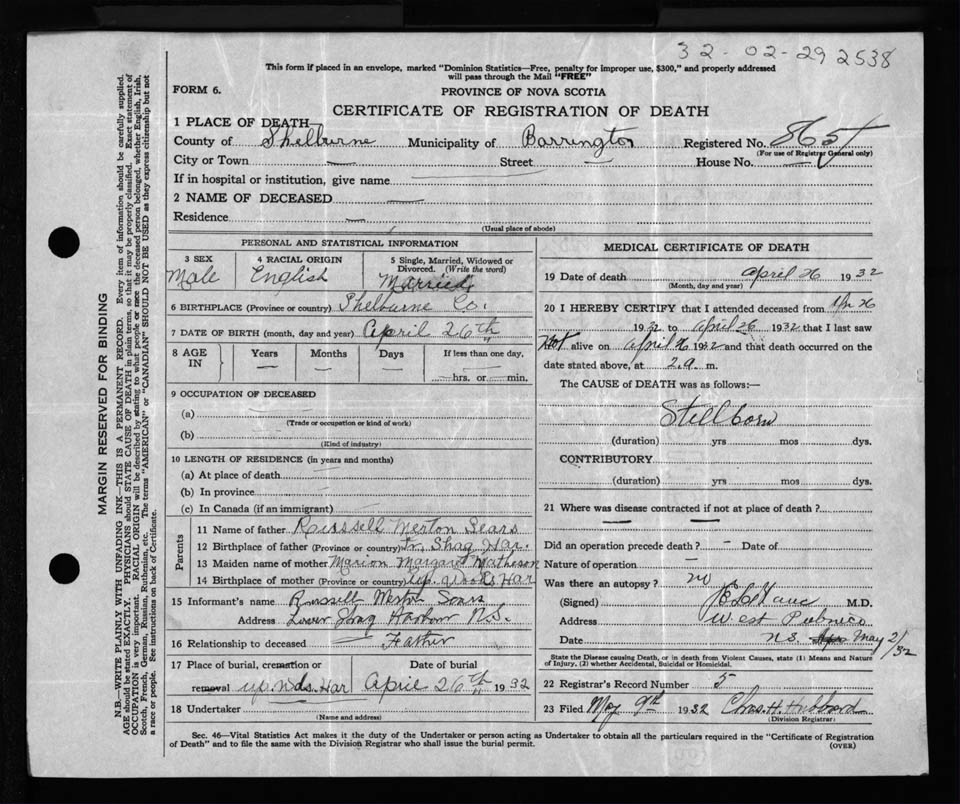 32-02-29 2538
This form if placed in an envelope, marked "Dominion Statistics—Free, penalty for improper use, $300," and properly addressed
will pass through the Mail "FREE"
FORM 6.
PROVINCE OF NOVA SCOTIA
CERTIFICATE OF REGISTRATION OF DEATH
1 PLACE OF DEATH
County of Shelburne Municipality of Barrington Registered No. 865
(For use of Registrar General only)
City or Town — Street — House No. —
If in hospital or institution, give name
2 NAME OF DECEASED —
Residence —
(Usual place of abode)
PERSONAL AND STATISTICAL INFORMATION
3 SEX 4 RACIAL ORIGIN 5 Single, Married, Widowed or
Divorced. (Write the word)
Male English Married
6 BIRTHPLACE (Province or country) Shelburne Co.
7 DATE OF BIRTH (month, day and year) April 26th
8 AGE IN Years Months Days If less than one day,
— — — hrs. or min.
9 OCCUPATION OF DECEASED
(a)
(Trade or occupation or kind of work)
(b)
(Kind of industry)
10 LENGTH OF RESIDENCE (in years and months)
(a) At place of death
(b) In province
(c) In Canada (if an immigrant)
Parents
11 Name of father Russell Merton Sears
12 Birthplace of father (Province or country) Shag Har.
13 Maiden name of mother Marion Margaret Matheson
14 Birthplace of mother (Province or country) Woods Har
15 Informant's name Russell Merton Sears
Address Lower Shag Harbour N.S.
16 Relationship to deceased Father
17 Place of burial, cremation or
removal Har
Date of burial
April 26th 1932
18 Undertaker
(Name and address)
MEDICAL CERTIFICATE OF DEATH
19 Date of death April 26 1932
(Month, day and year)
20 I HEREBY CERTIFY that I attended deceased from Apr 26
1932 to April 26 1932 that I last saw
Not alive on April 26 1932 and that death occurred on the
date stated above, at 2 a. m.
The CAUSE of DEATH was as follows:—
Stillborn
(duration) yrs mos dys.
CONTRIBUTORY
(duration) yrs mos dys.
21 Where was disease contracted if not at place of death?
Did an operation precede death? – Date of
Nature of operation –
Was there an autopsy? no
(Signed) M.D.
Address West Pubnico
Date N.S. May 2/32
State the Disease causing Death, or in death from Violent Causes, state (1) Means and Nature
of Injury, (2) whether Accidental, Suicidal or Homicidal.
22 Registrar's Record Number 5
23 Filed May 9th 1932 Chas. H. Hubbard
(Division Registrar)
Sec. 46—Vital Statistics Act makes it the duty of the Undertaker or person acting as Undertaker to obtain all the particulars required in the "Certificate of Registration
of Death" and to file the same with the Division Registrar who shall issue the burial permit.
(OVER)
MARGIN RESERVED FOR BINDING
N.B.—WRITE PLAINLY WITH UNFADING INK—THIS IS A PERMANENT RECORD. Every item of information should be carefully supplied.
AGE should be stated EXACTLY. PHYSICIANS should STATE CAUSE OF DEATH in plain terms, so that it may be properly classified. Exact statement of
OCCUPATION is very important. RACIAL ORIGIN will be described by stating to what people or race the deceased person belonged, whether English, Irish,
Scotch, French, German, Russian, Ruthenian, etc. The terms "AMERICAN" or "CANADIAN" SHOULD NOT BE USED as they express citizenship but not
a race or people. See instructions on back of Certificate.